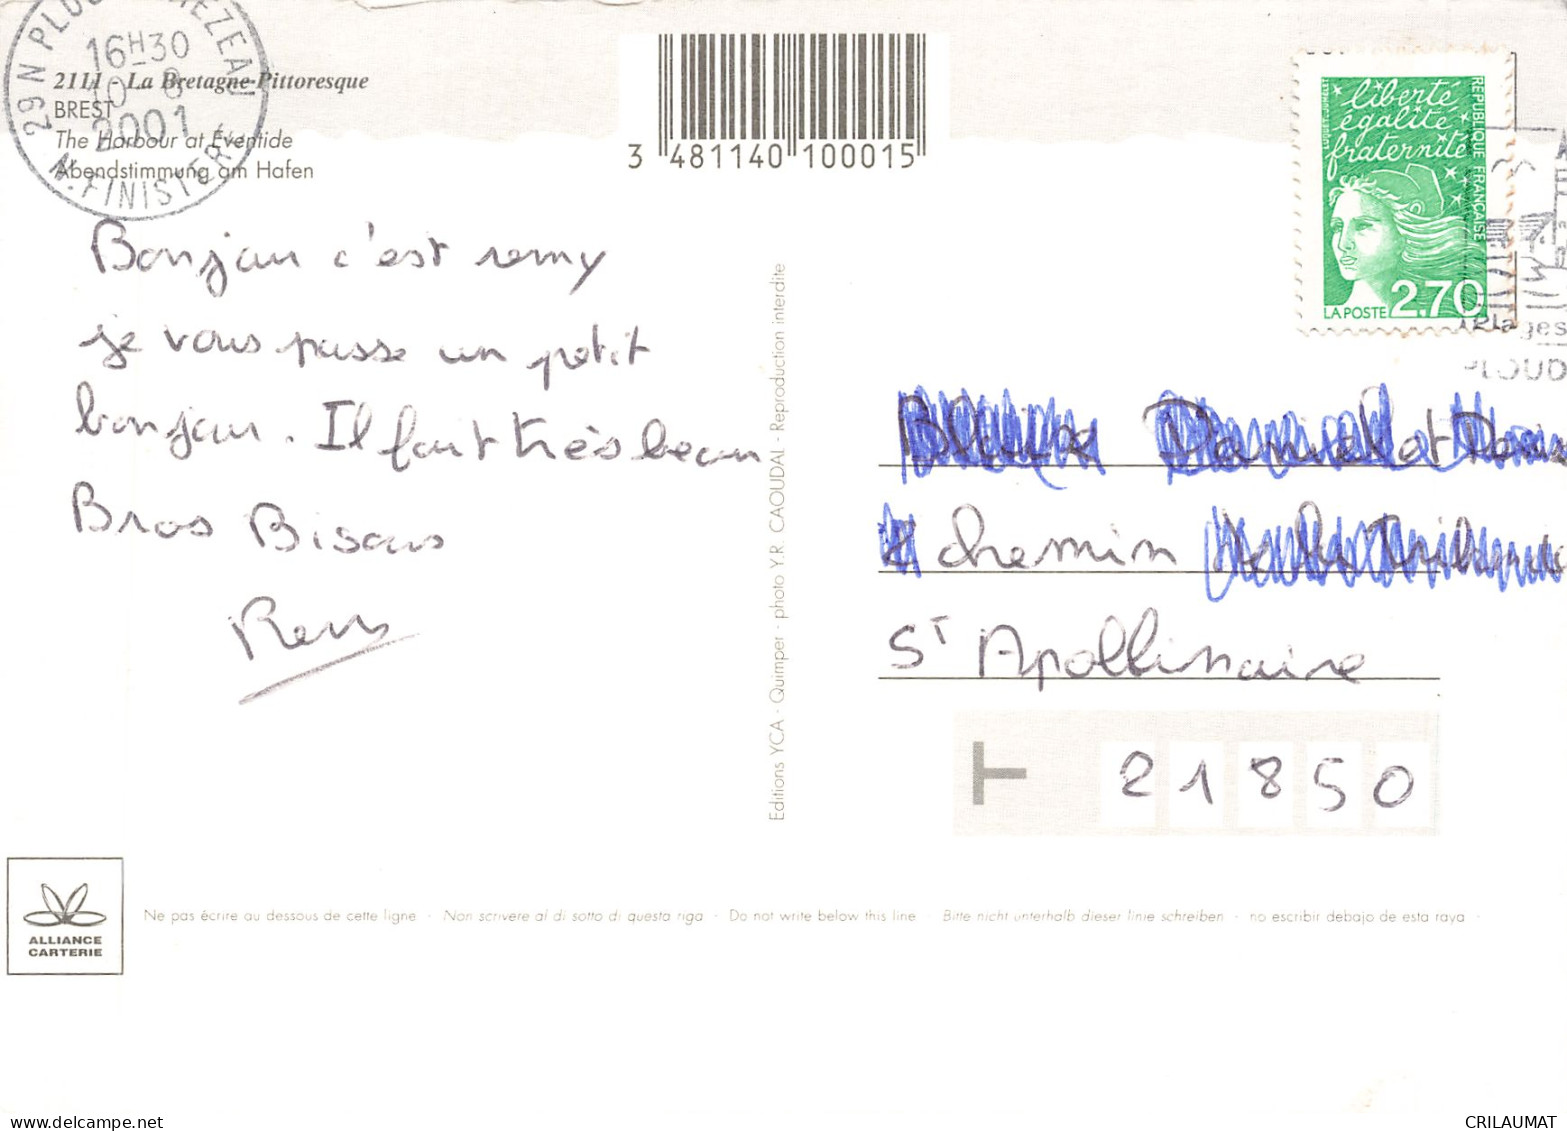 16H30
2001
29 N
N. FINISTERE
2111 - La Bretagne Pittoresque
BREST
The Harbour at Eventide
Abendstimmung am Hafen
3 481140 100015
liberté
égalité
fraternité
REPUBLIQUE FRANÇAISE
LA POSTE 2,70
Plages
PLOUD
Bonjour c'est remy
je vous passe un petit
bonjour. Il fait très beau
Gros Bisous
Remy
Editions YCA - Quimper - photo Y.R. CAOUDAL - Reproduction interdite
chemin
St Apollinaire
21850
ALLIANCE
CARTERIE
Ne pas écrire au dessous de cette ligne - Non scrivere al di sotto di questa riga - Do not write below this line - Bitte nicht unterhalb dieser linie schreiben - no escribir debajo de esta raya -
CRILAUMAT